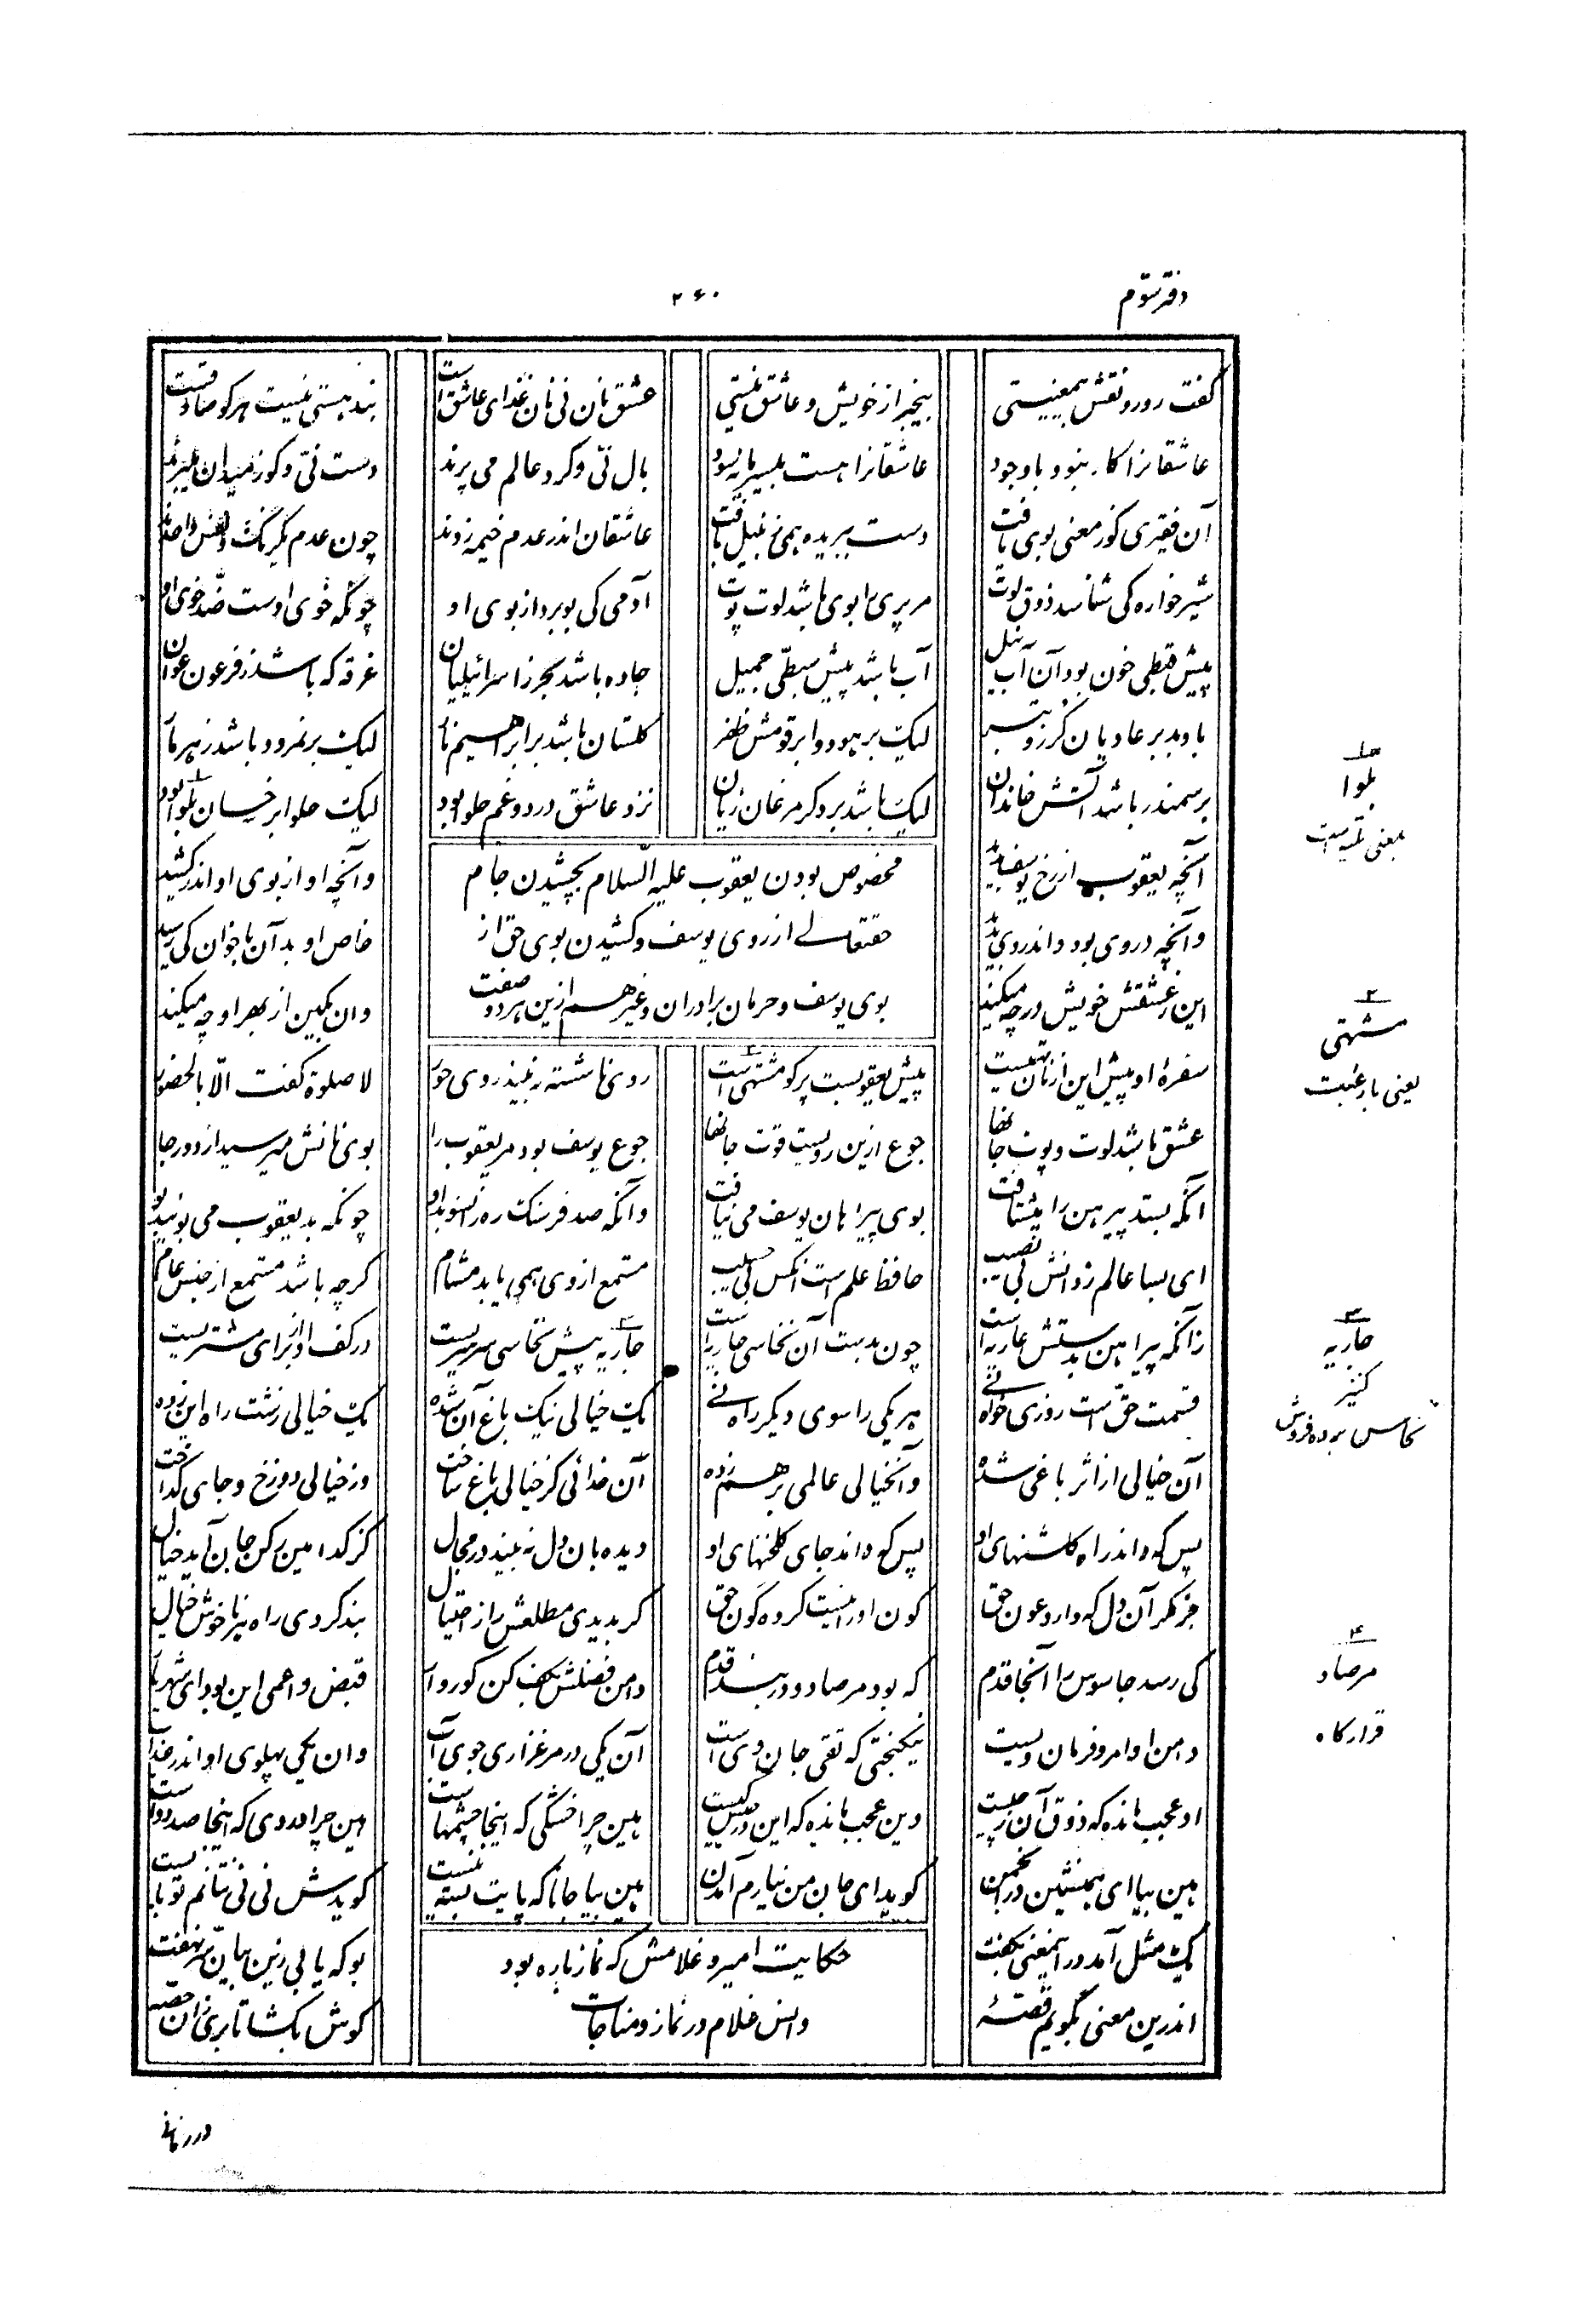 دفتر سوّم
۲۶۰
گفت رو رو نقش بیمعنیستی
بیخبر از خویش و عاشق نیستی
عشق نان بی نان غذای عاشق است
بند هستی نیست هر کو صادقست
عاشقانرا کار نبود با وجود
عاشقانرا هست بیسرمایه سود
بال نی و گرد عالم می پرند
دست نی و گو ز میدان میبرند
آن فقیری کوز معنی بوی یافت
دست ببریده همی زنبیل بافت
عاشقان اندر عدم خیمه زدند
چون عدم یکرنگ و نفس واحدند
شیر خواره کی شناسد ذوق لوت
مر پری را بوی باشد لوت پوت
آدمی کی بو برد از بوی او
چونکه خوی اوست ضدّ خوی او
پیش قبطی خون بود آن آب نیل
آب باشد پیش سبطیّ جمیل
جاده باشد بحر ز اسرائیلیان
غرقه که باشد ز فرعون عوان
باد بد بر عادیان گرز و تبر
لیک بر هود و ابر قومش ظفر
گلستان باشد بر ابراهیم نار
لیک بر نمرود باشد زهر مار
بر سمندر باشد آتش خاندان
لیک باشد بر دگر مرغان زیان
نزد عاشق درد و غم حلوا بود
لیک حلوا بر خسان بلوا بود
مخصوص بودن یعقوب علیه السّلام بچشیدن جام
حقتعالی از روی یوسف و کشیدن بوی حق از
بوی یوسف و حرمان برادران و غیرهم ازین هر دو صفت
آنچه یعقوب از رخ یوسف بدید
وآنچه او از بوی او اندر کشید
وآنچه در وی بود و اندر وی بدید
خاص او بد آن باخوان کی رسید
این ز عشقش خویش در چه میکند
وان بکین از بهر او چه میکند
سفرهٔ او پیش این از نان تهیست
پیش یعقوبست پر کو مشتهی است
روی ناشسته نه بیند روی حور
لا صلوة گفت الّا بالحضور
عشق باشد لوت و پوت جانها
جوع ازین رویست قوت جانها
جوع یوسف بود مر یعقوب را
بوی نانش میرسید از دور جا
آنکه بستد پیرهن را میشتافت
بوی پیراهان یوسف می نیافت
وانکه صد فرسنگ ره زانسو بد او
چونکه بد یعقوب می بوئید بو
ای بسا عالم ز دانش بی نصیب
حافظ علم است آنکس نی حبیب
مستمع از وی همی یابد مشام
گرچه باشد مستمع از جنس عام
زآنکه پیراهن بدستش عاریه است
چون بدست آن نخاسی جاریه است
جاریه پیش نخاسی سرسریست
در کف او از برای مشتریست
قسمت حقّ است روزی خواه نی
هر یکی را سوی دیگر راه نی
یک خیالی نیک باغ آن شده
یک خیالی زشت راه این زده
آن خیالی از اثر باغی شده
وآنخیالی عالمی بر هم زده
آن خدائی کز خیالی باغ ساخت
وز خیالی دوزخ و جای گداخت
پس که داند راه گلشنهای او
پس که داند جای گلخنهای او
دیده بان دل نه بیند در مجال
کز کدامین رکن جان آید خیال
جز مگر آن دل که دارد عون حق
کون او را نیست کرده کون حق
گر بدیدی مطلعش را ز احتیال
بند کردی راه هر ناخوش خیال
کی رسد جاسوس را آنجا قدم
که بود مرصاد و دربند قدم
دامن فضلش بکف کن کوروار
قبض اعمی این بود ای شهریار
دامن او امر و فرمان ویست
نیکبختی که تقی جان وی است
آن یکی در مرغزار و جوی آب
وان یکی پهلوی او اندر عذاب
او عجب مانده که ذوق آن ز چیست
وین عجب مانده که این در حبس کیست
هین چرا خشکی که اینجا چشمهاست
هین چرا دردی که اینجا صد دواست
هین بیا ای همنشین در انجمن
گوید ای جان من نیارم آمدن
هین بیا جانا که پایت بسته نیست
گویدش نی نی نتانم تو بایست
حکایت امیر و غلامش که نماز باره بود
وانس غلام در نماز و مناجات
یک مثل آمد در اینمعنی بگفت
بو که یابی زین بیان سرّ نهفت
اندرین معنی بگویم قصّهٔ
گوش بگشا تا بری زان حصّه
۱
بلوا
بمعنی بلیه است
۲
مشتهی
یعنی بارغبت
۳
جاریه
کنیز
نخاس برده فروش
۴
مرصاد
قرارگاه
در زمانی